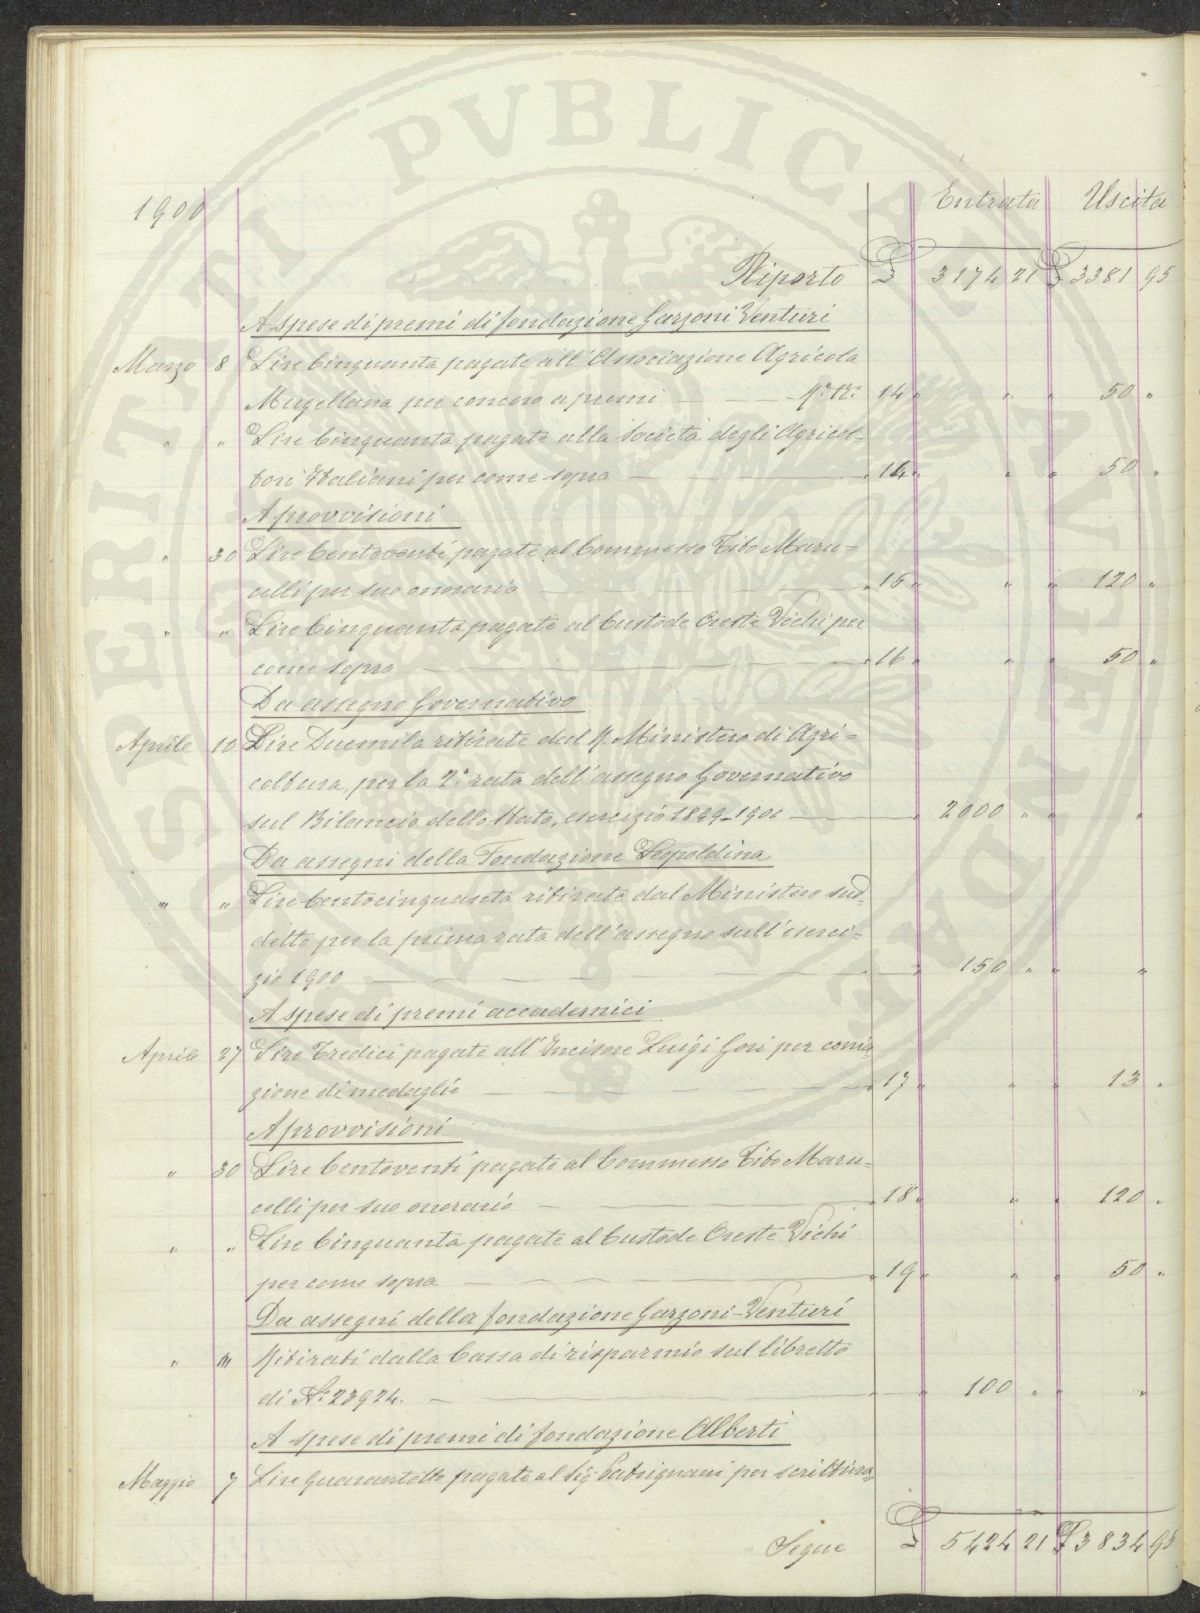 PROSPERITATI PVBLICAE AVGENDAE
1900 Entrata Uscita
Riporto £ 3174 21 £ 3381 95
A spese di premi di fondazione Garzoni Venturi
Marzo 8 Lire Cinquanta pagate all'Associazione Agricola
Mugellana per concorso a premi — 14 " " " 50 "
" " Lire Cinquanta pagate alla Società degli Agricol=
tori Italiani per come sopra — " 14 " " " 50 "
A provvisioni
" 30 Lire Centoventi pagate al Commesso Tito Maru=
celli per suo onorario — " 15 " " " 120 "
" " Lire Cinquanta pagate al Custode Oreste Vichi per
come sopra — " 16 " " " 50 "
Da assegno Governativo
Aprile 10 Lire Duemila ritirate dal R. Ministero di Agri=
coltura, per la 2ª rata dell'assegno Governativo
sul Bilancio dello Stato, esercizio 1899-1900 — " 2000 " " "
Da assegni della Fondazione Leopoldina
" " Lire Centocinquanta ritirate dal Ministero sud=
detto per la prima rata dell'assegno sull'eserci=
zio 1900 — " 150 " " "
A spese di premi accademici
Aprile 27 Lire Tredici pagate all'Incisore Luigi Gori per conia
zione di medaglie — " 17 " " " 13 "
A provvisioni
" 30 Lire Centoventi pagate al Commesso Tito Maru=
celli per suo onorario — " 18 " " " 120 "
" " Lire Cinquanta pagate al Custode Oreste Vichi
per come sopra — " 19 " " " 50 "
Da assegni della fondazione Garzoni-Venturi
" " Ritirati dalla Cassa di risparmio sul libretto
di Nº 23924. — " 100 " " "
A spese di premi di fondazione Alberti
Maggio 7 Lire Quarantotto pagate al Sig. Patrignani per scrittura=
Segue £ 5424 21 £ 3834 95